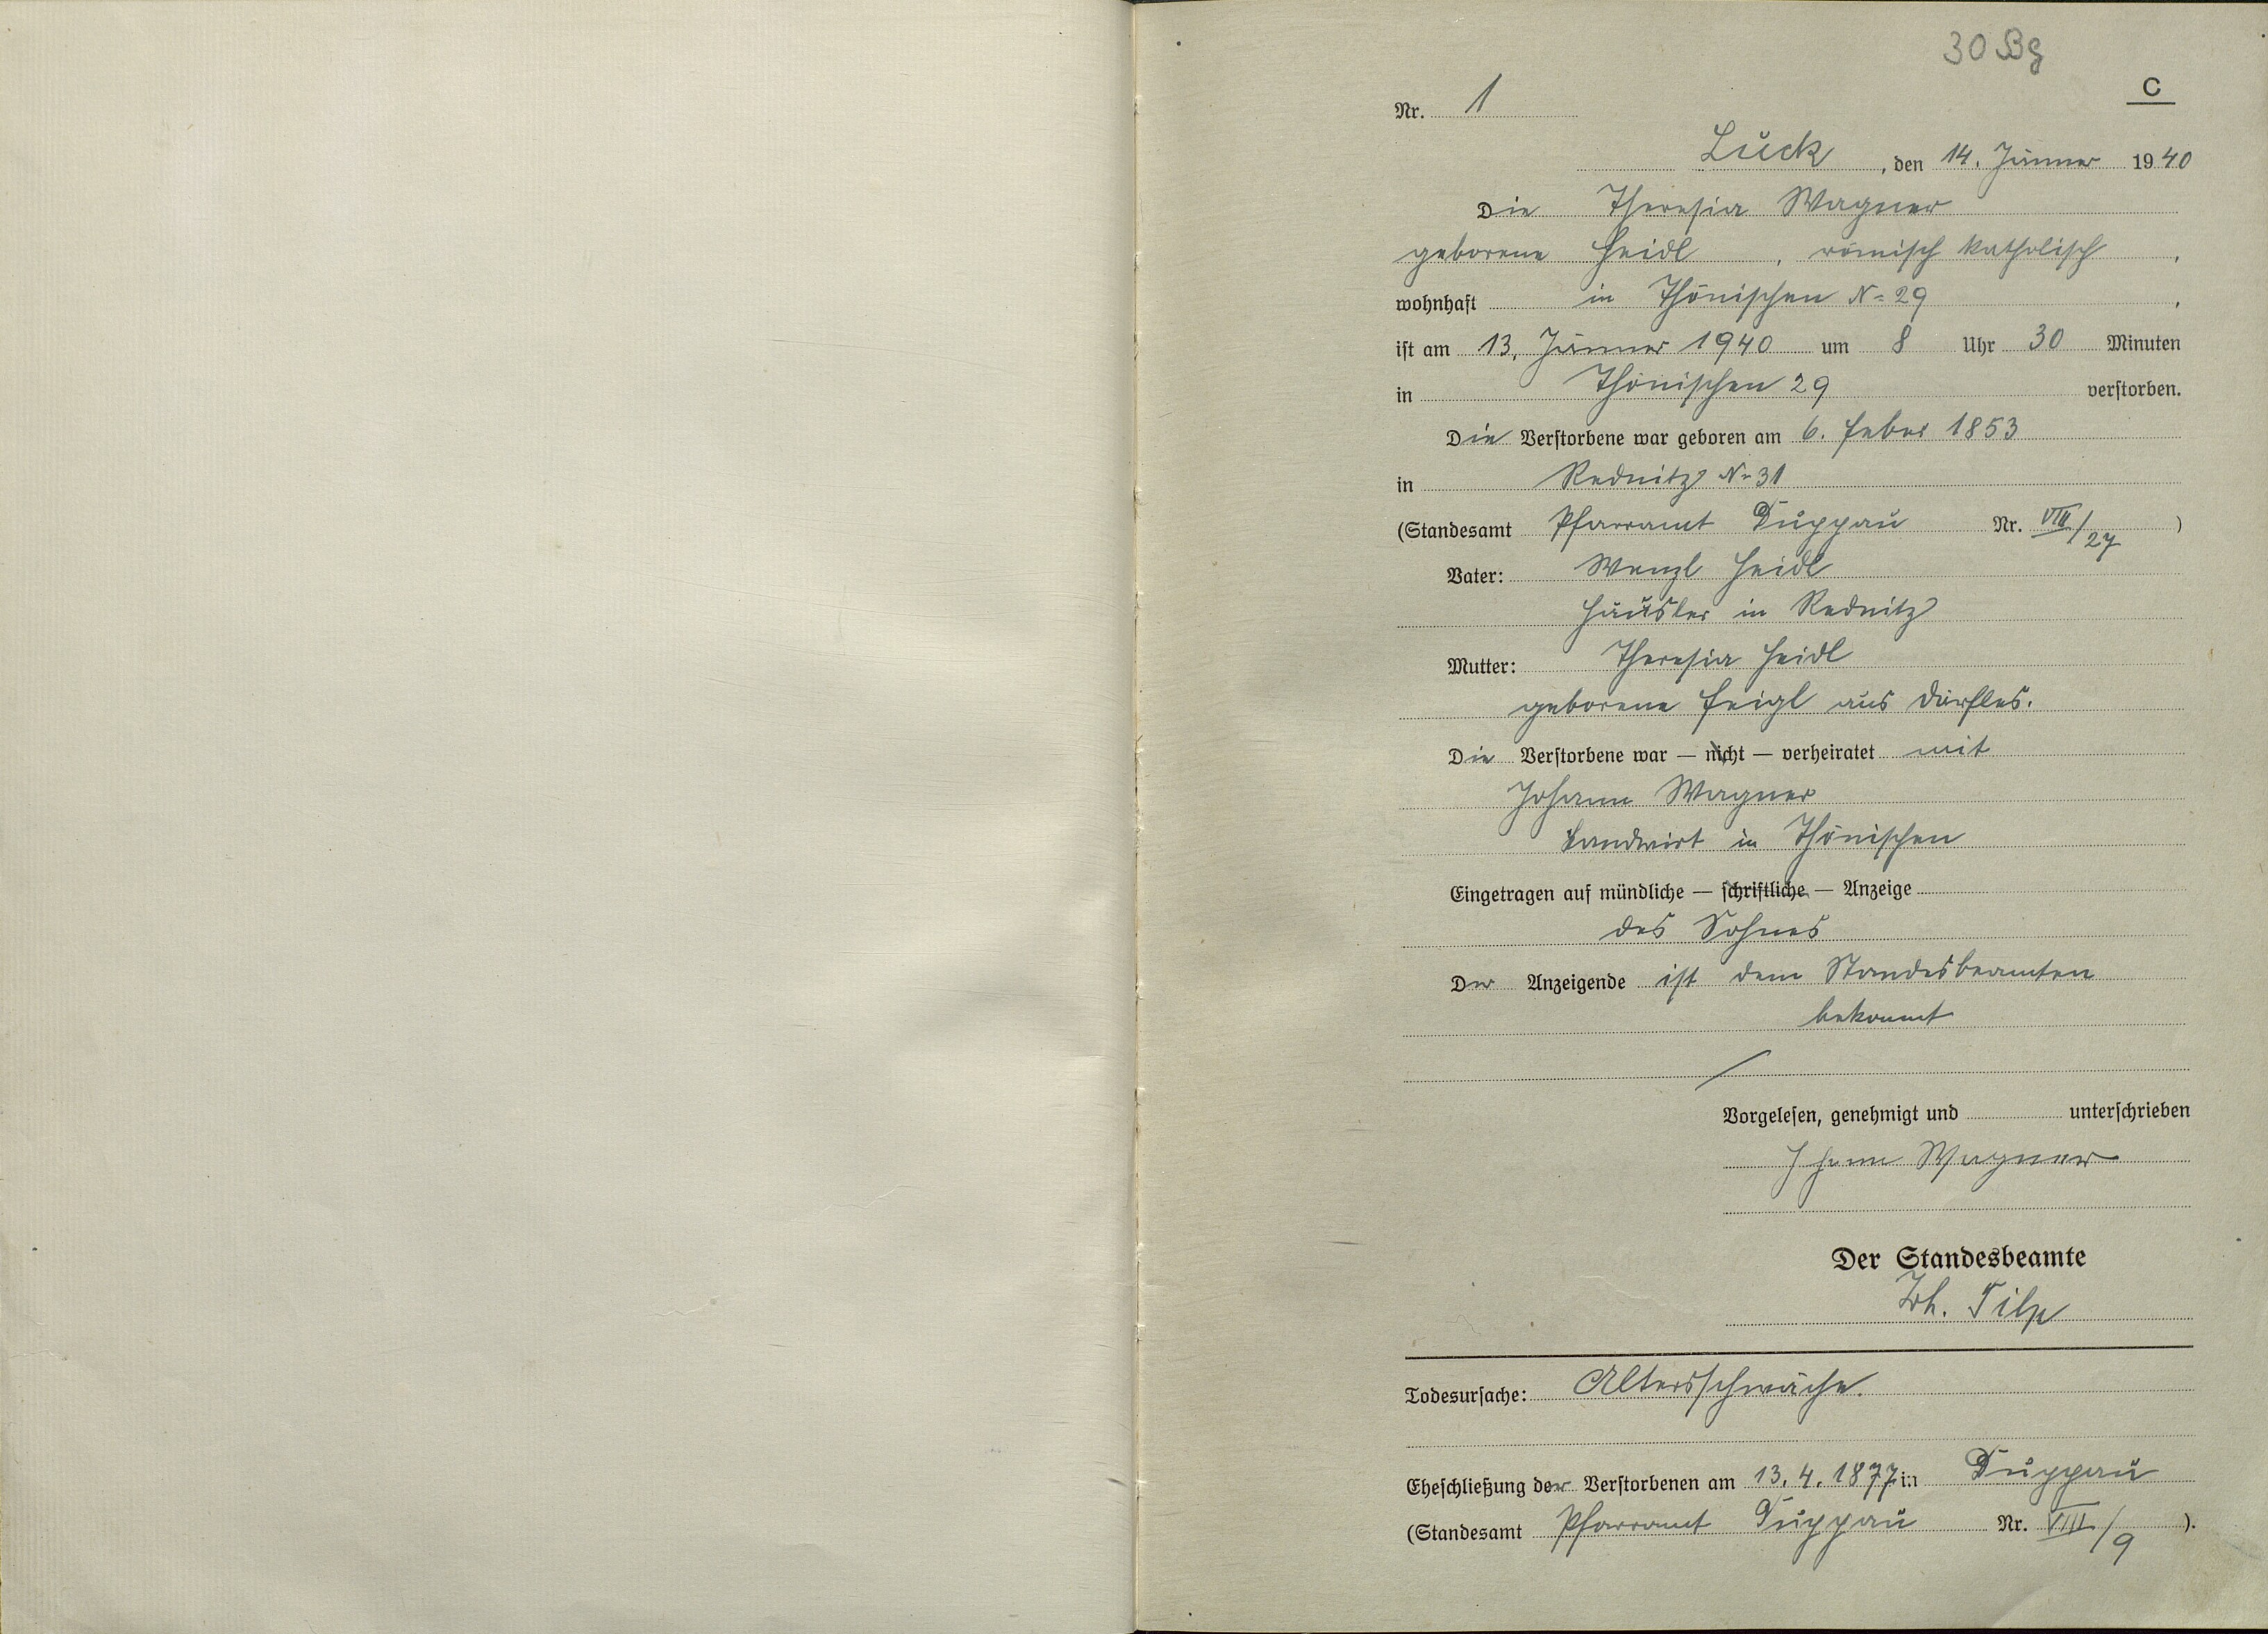 30 Bg
C
Nr. 1
Luck, den 14. Jänner 1940
Die Theresia Wagner
geborene Heidl, römisch katholisch,
wohnhaft in Thönischen No 29,
ist am 13. Jänner 1940 um 8 Uhr 30 Minuten
in Thönischen 29 verstorben.
Die Verstorbene war geboren am 6. Feber 1853
in Rednitz No 31
(Standesamt Pfarramt Duppau Nr. VIII/27)
Vater: Wenzl Heidl
Häusler in Rednitz
Mutter: Theresia Heidl
geborene Feigl aus Dörfles.
Die Verstorbene war — nicht — verheiratet mit
Johann Wagner
Landwirt in Thönischen
Eingetragen auf mündliche — schriftliche — Anzeige
des Sohnes
Der Anzeigende ist dem Standesbeamten
bekannt
Vorgelesen, genehmigt und unterschrieben
Johann Wagner
Der Standesbeamte
Joh. Tilp
Todesursache: Altersschwäche.
Eheschließung der Verstorbenen am 13.4.1877 in Duppau
(Standesamt Pfarramt Duppau Nr. VIII/9).